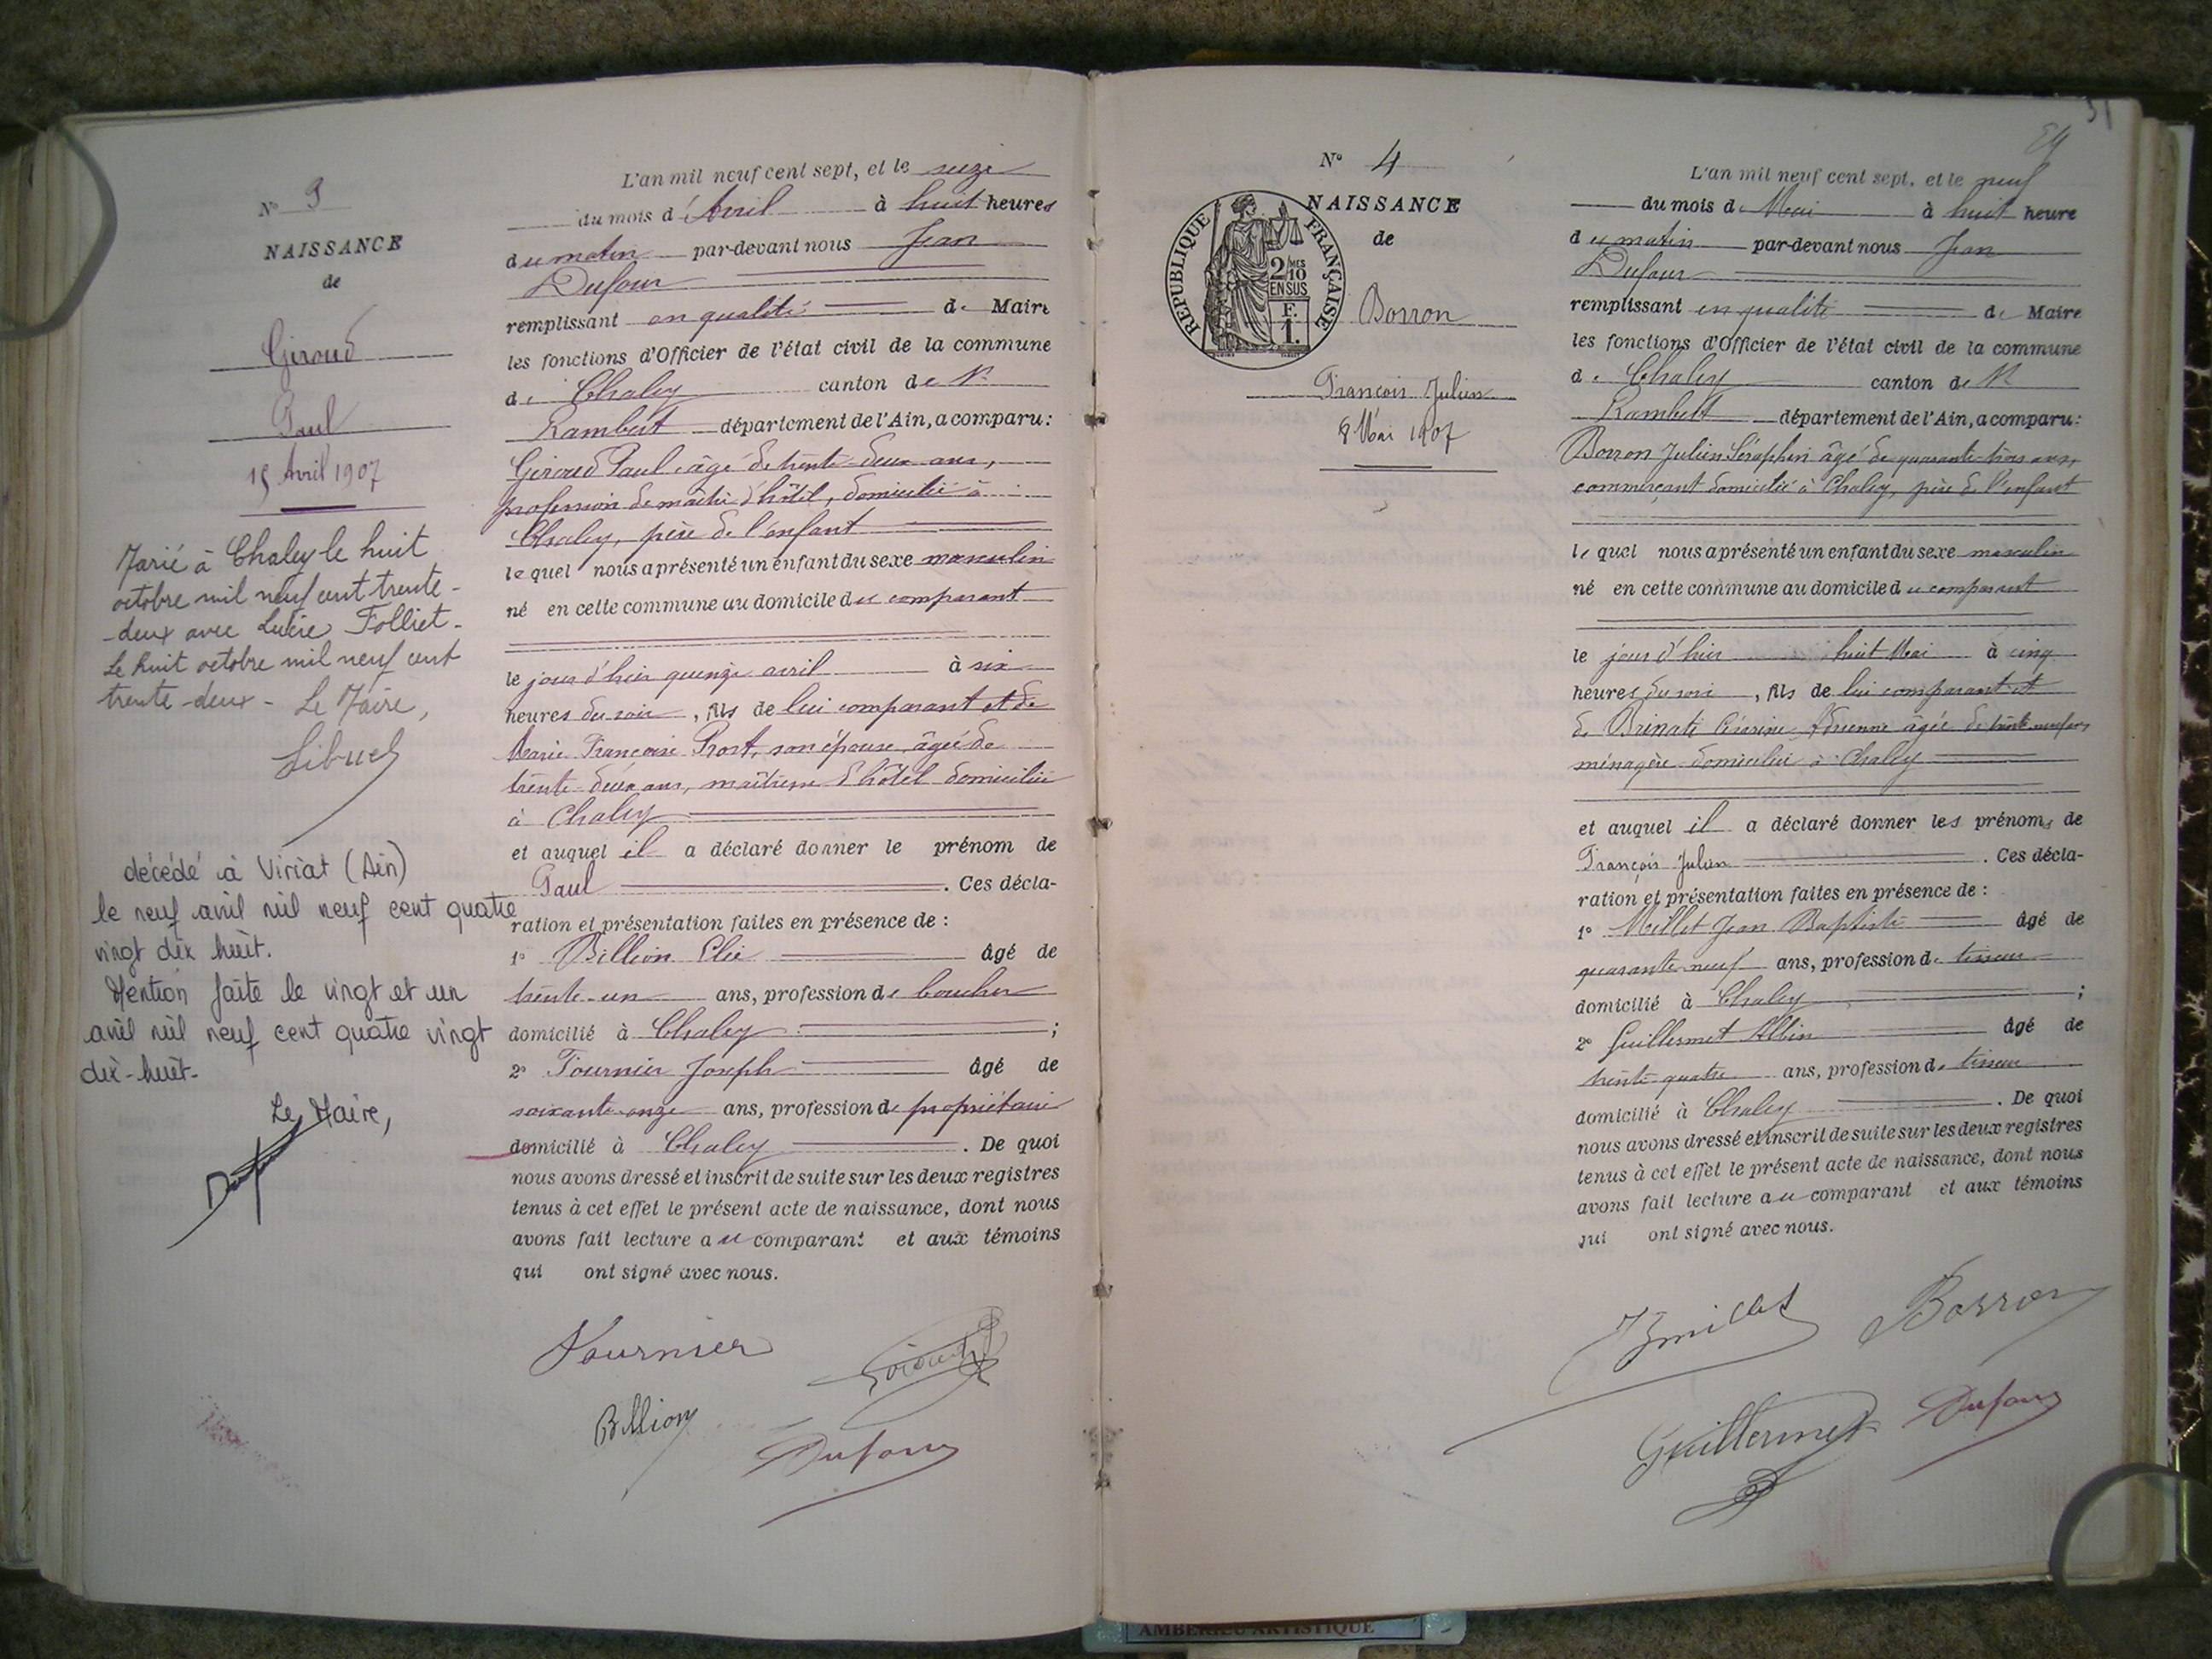 N° 3
NAISSANCE
de
Giroud
Paul
15 Avril 1907
Marié à Chaley le huit
octobre mil neuf cent trente-
-deux avec Lucie Folliet-
Le huit octobre mil neuf cent
trente-deux - Le Maire,
décédé à Viriat (Ain)
le neuf avril mil neuf cent quatre
vingt dix huit.
Mention faite le vingt et un
avril mil neuf cent quatre vingt
dix-huit-
Le Maire,
L'an mil neuf cent sept, et le seize
du mois d'Avril à huit heures
du matin par-devant nous Jean
Dufour
remplissant en qualité de Maire
les fonctions d'Officier de l'état civil de la commune
de Chaley canton de St
Rambert département de l'Ain, a comparu:
Giroud Paul âgé de trente-deux ans,
profession de maître d'hôtel, domicilié à
Chaley, père de l'enfant
lequel nous a présenté un enfant du sexe masculin
né en cette commune au domicile du comparant
le jour d'hier quinze avril à six
heures du soir, fils de lui comparant et de
Marie Françoise Prost, son épouse, âgée de
trente-deux ans, maîtresse d'hôtel domiciliée
à Chaley
et auquel il a déclaré donner le prénom de
Paul. Ces décla-
ration et présentation faites en présence de :
1° Billion Elie âgé de
trente-un ans, profession de boucher
domicilié à Chaley ;
2° Fournier Joseph âgé de
soixante-onze ans, profession de propriétaire
domicilié à Chaley. De quoi
nous avons dressé et inscrit de suite sur les deux registres
tenus à cet effet le présent acte de naissance, dont nous
avons fait lecture au comparant et aux témoins
qui ont signé avec nous.
Fournier
Giroud
Billion
Dufour
N° 4
NAISSANCE
de
RÉPUBLIQUE FRANÇAISE
2/10 MES
EN SUS
F.
1.
Borron
François Julien
8 Mai 1907
L'an mil neuf cent sept, et le neuf
du mois de Mai à huit heure
du matin par-devant nous Jean
Dufour
remplissant en qualité de Maire
les fonctions d'Officier de l'état civil de la commune
de Chaley canton de St
Rambert département de l'Ain, a comparu:
Borron Julien Séraphin âgé de quarante-trois ans,
commerçant domicilié à Chaley, père de l'enfant
lequel nous a présenté un enfant du sexe masculin
né en cette commune au domicile du comparant
le jour d'hier huit Mai à cinq
heures du soir, fils de lui comparant et
de Adrienne âgée de trente-neuf ans,
ménagère domiciliée à Chaley
et auquel il a déclaré donner les prénoms de
François Julien. Ces décla-
ration et présentation faites en présence de :
1° Millet Jean Baptiste âgé de
quarante-neuf ans, profession de tisseur
domicilié à Chaley ;
2° Guillermet Albin âgé de
trente-quatre ans, profession de tisseur
domicilié à Chaley. De quoi
nous avons dressé et inscrit de suite sur les deux registres
tenus à cet effet le présent acte de naissance, dont nous
avons fait lecture au comparant et aux témoins
qui ont signé avec nous.
Borron
Guillermet
Dufour
AMBERIEU ARTISTIQUE